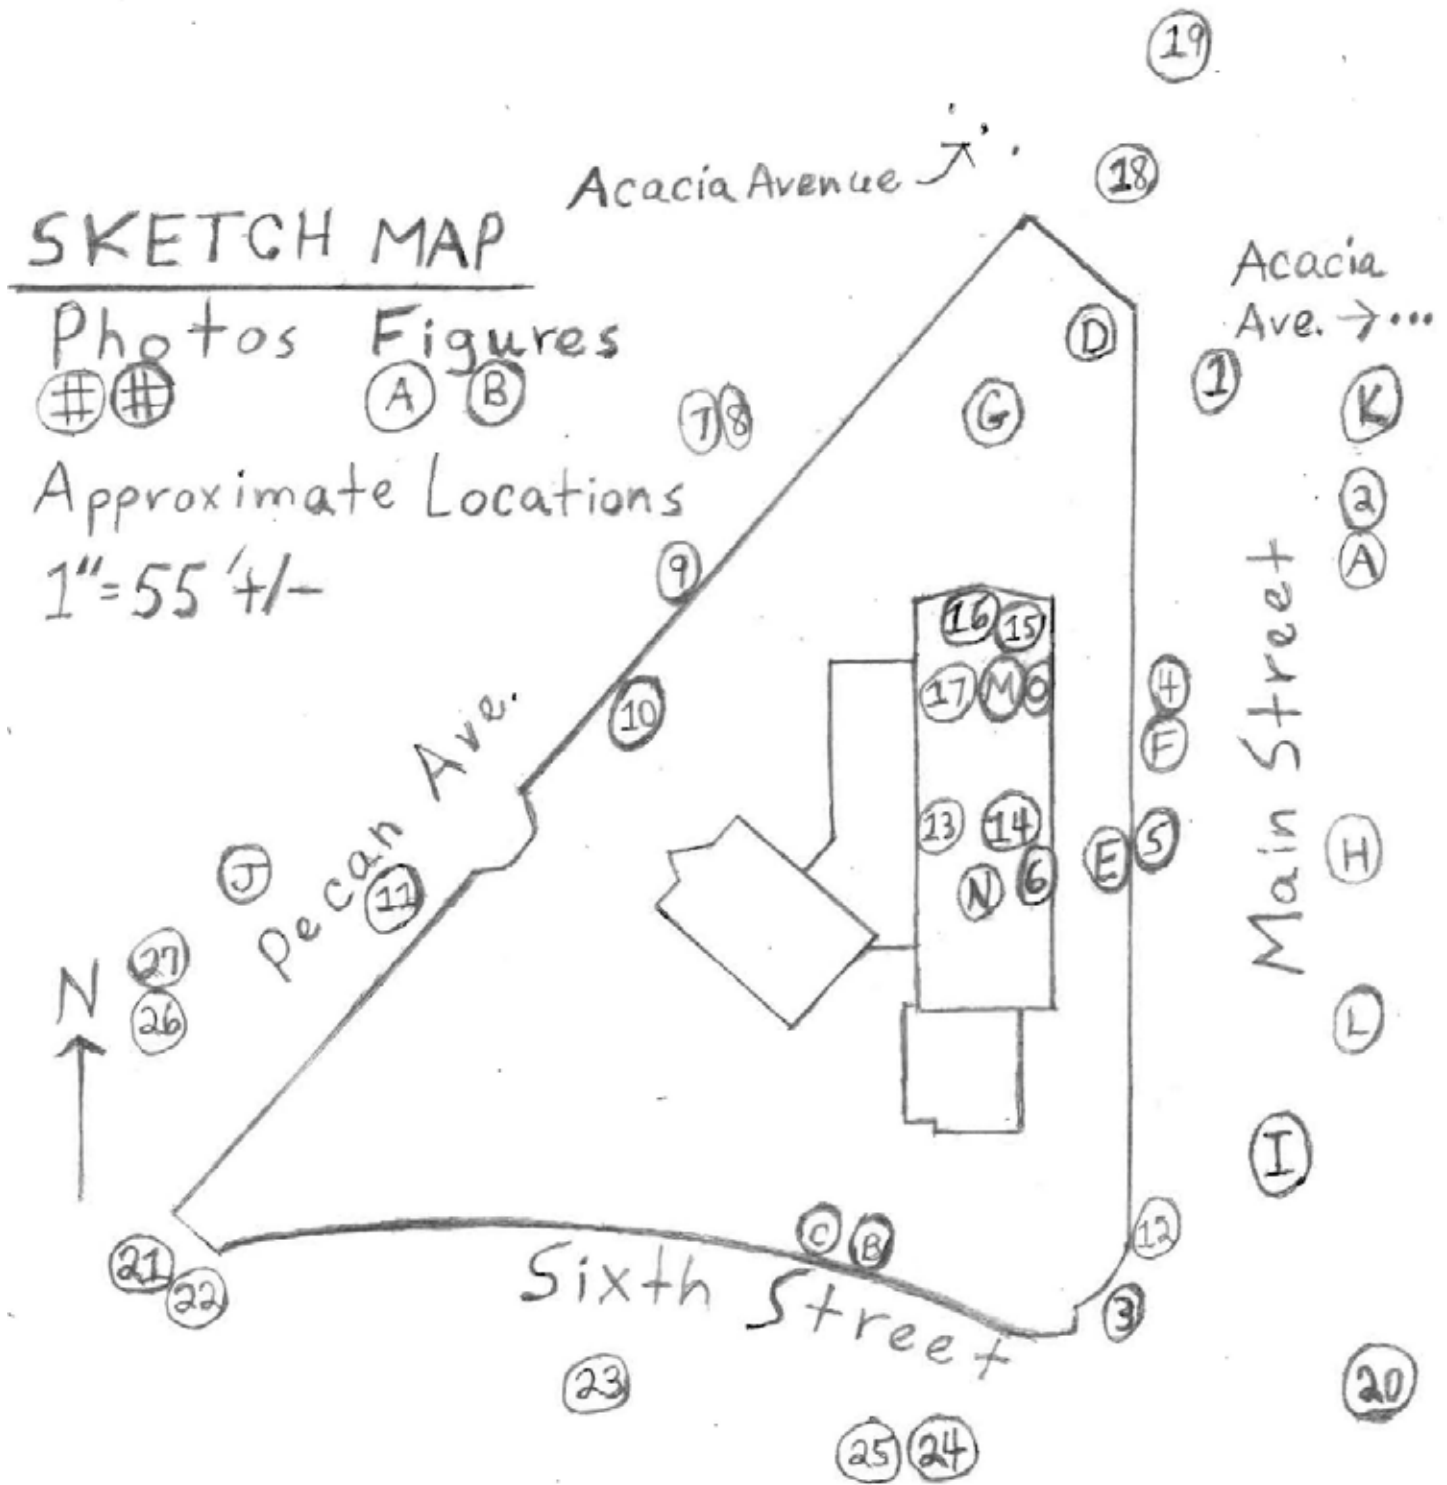 19
Acacia Avenue
18
SKETCH MAP
Photos Figures
# # A B
Approximate Locations
1"=55'+/-
Acacia
Ave. → ...
D
1
K
G
7 8
2
A
9
16 15
17 M O
4
F
10
Pecan Ave.
Main Street
13 14
E 5
H
J
11
N 6
N
27
26
L
I
12
C B
21
22
Sixth Street
3
23
20
25 24